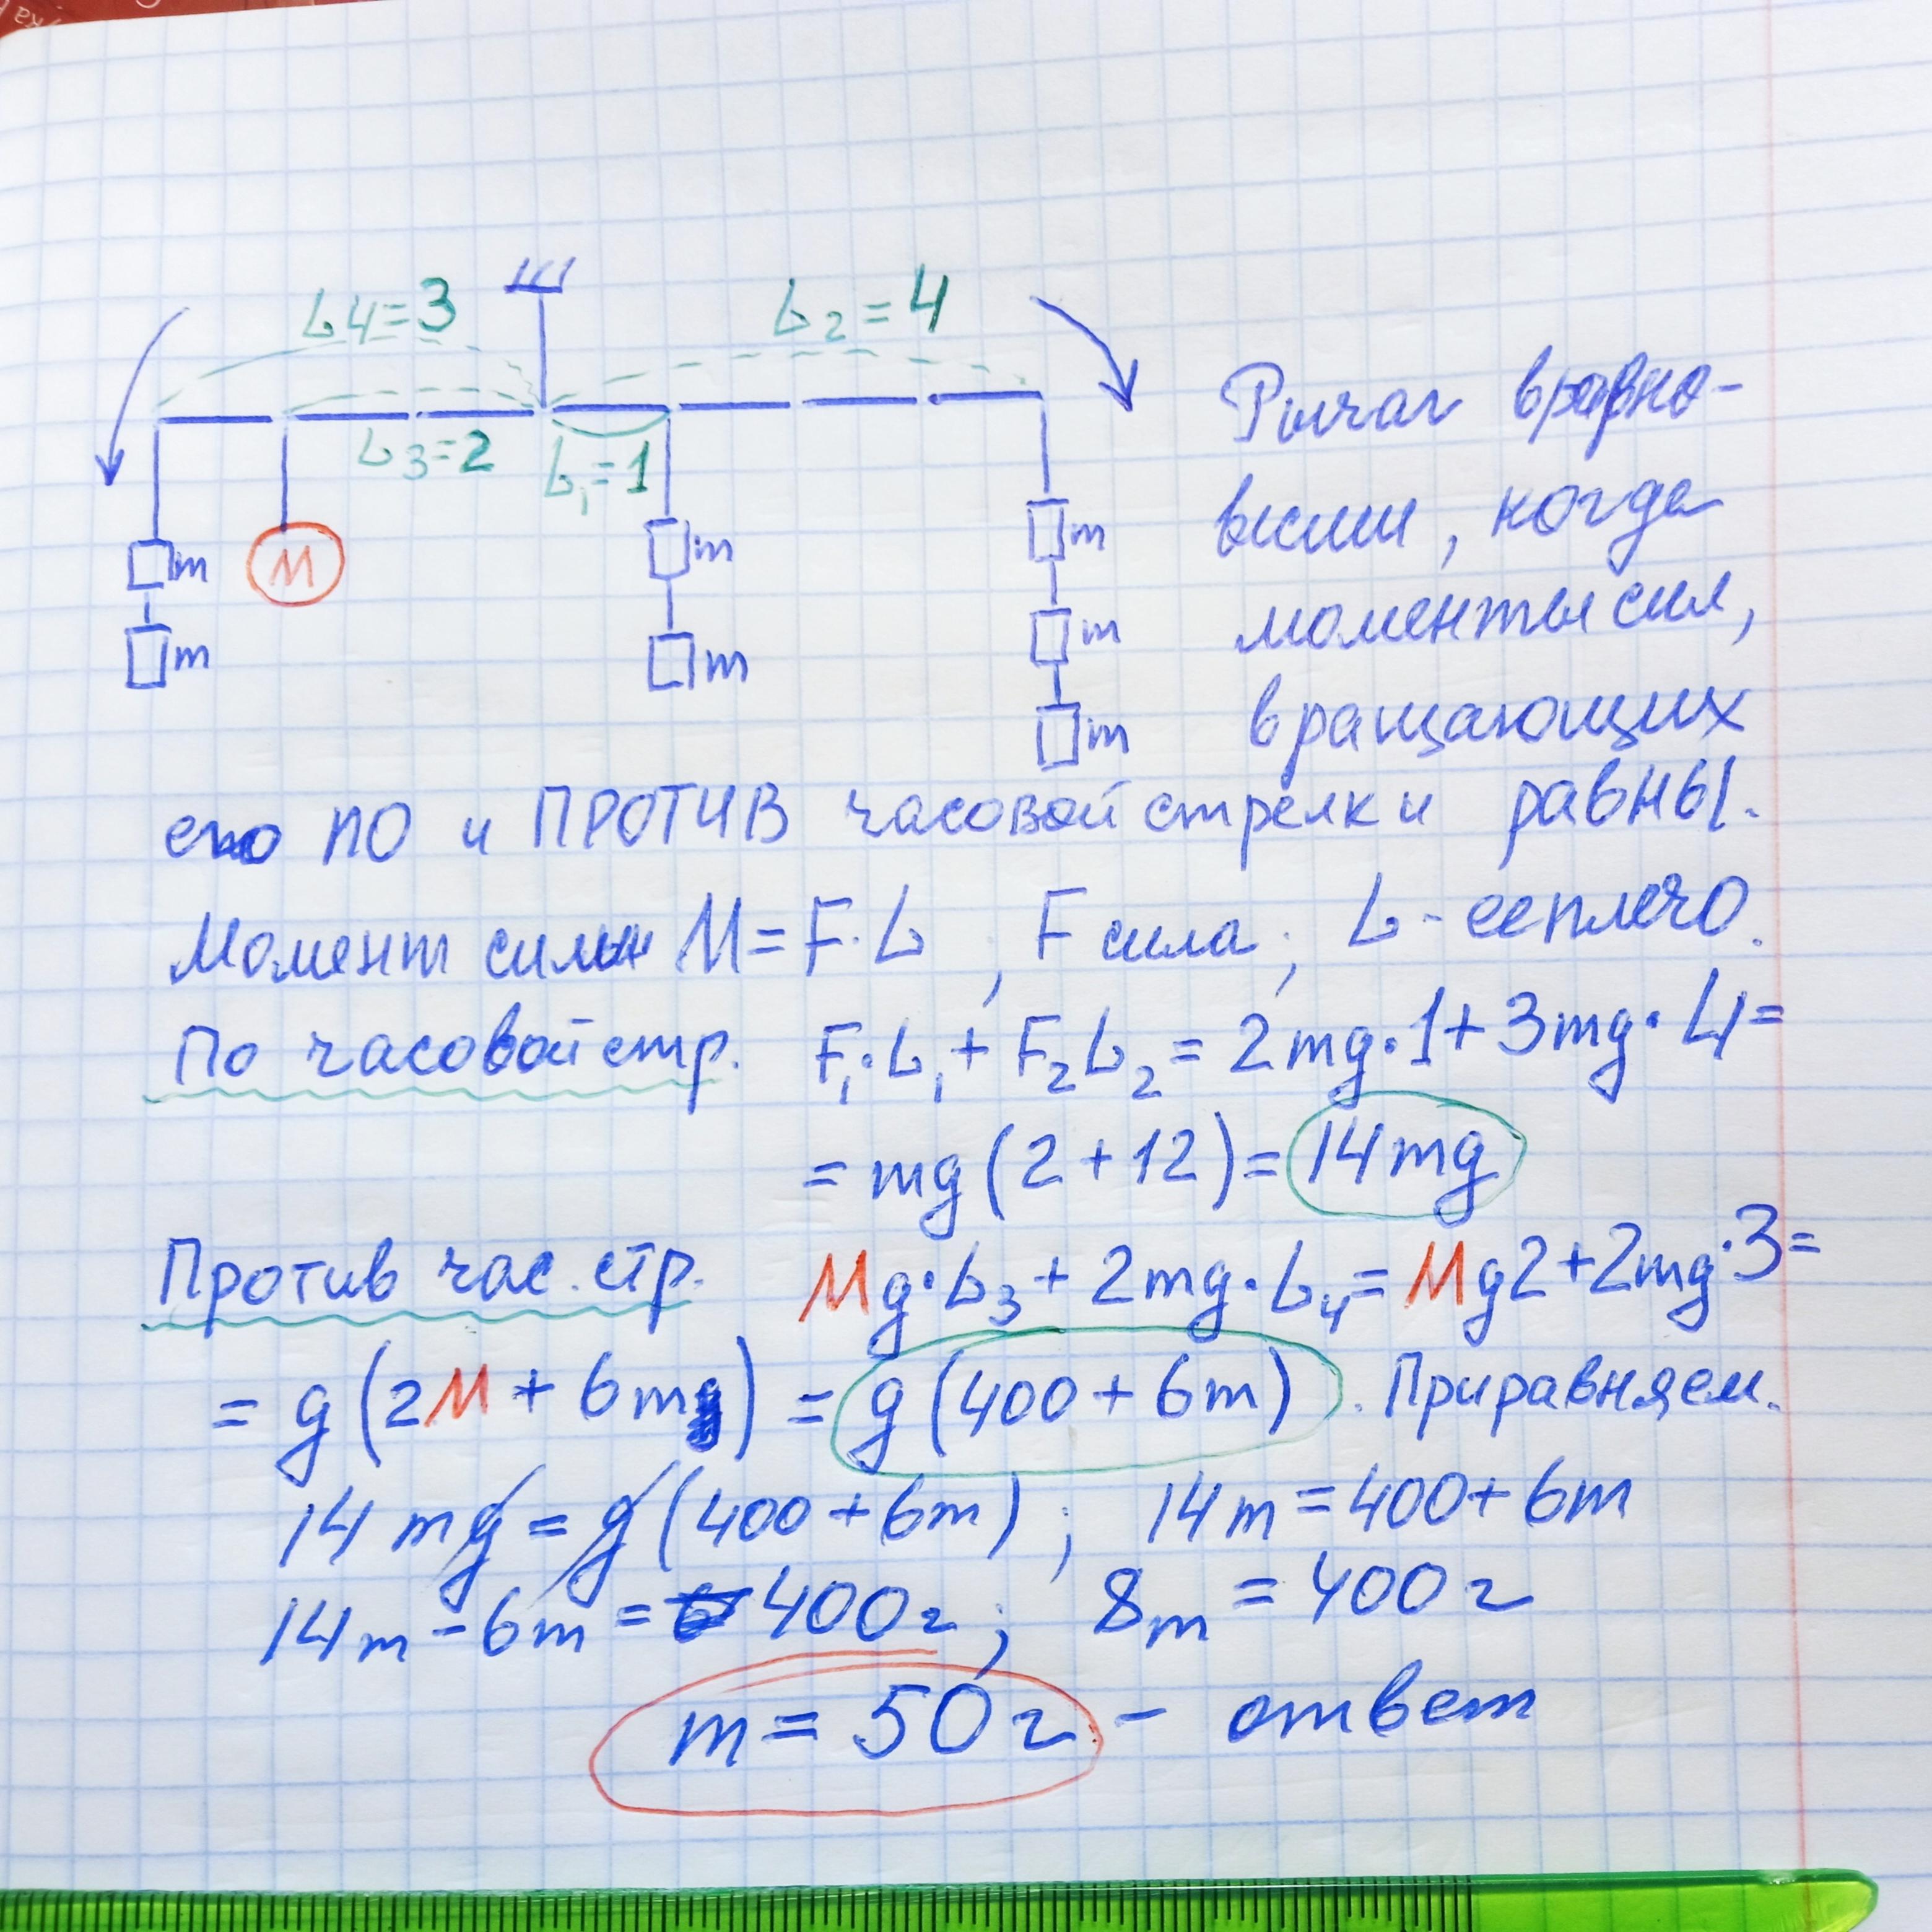 L4=3
L2=4
L3=2
L1=1
m
M
m
m
m
m
m
m
Рычаг в равно-
весии, когда
моменты сил,
вращающих
его ПО и ПРОТИВ часовой стрелки равны.
Момент силы M=F·L, F сила; L - ее плечо.
По часовой стр. F₁·L₁+F₂L₂=2mg·1+3mg·4=
=mg(2+12)=14mg
Против час. стр. Mg·L₃+2mg·L₄=Mg2+2mg·3=
=g(2M+6m)=g(400+6m). Приравняем.
14mg=g(400+6m); 14m=400+6m
14m-6m=400г; 8m=400г
m=50г - ответ